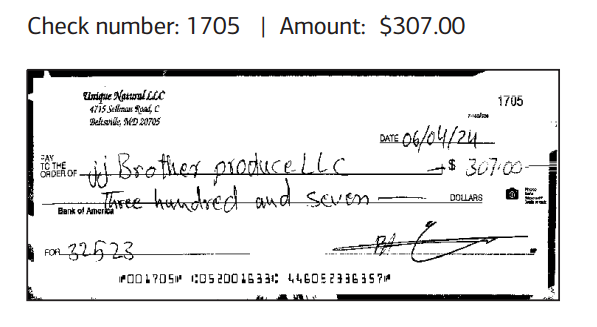 Check number: 1705 | Amount: $307.00
Unique Natural LLC
4715 Sellman Road, C
Beltsville, MD 20705
1705
DATE 06/04/24
PAY TO THE ORDER OF jj Brother produce LLC $ 307.00
Three hundred and seven DOLLARS
Bank of America
FOR 32523
⑈001705⑈ ⑆052001633⑆ 446052336357⑈